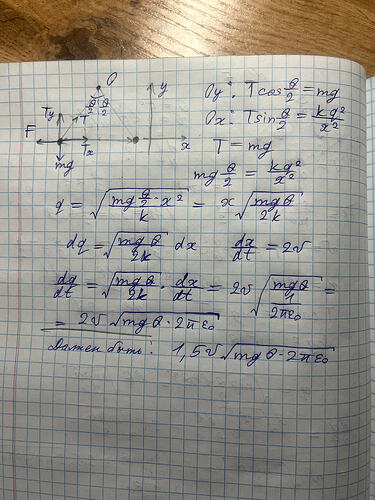 O
y
Oy: T cos θ/2 = mg
θ/2 θ/2
Ty T
Ox: T sin θ/2 = kq²/x²
F
Tx
x
T = mg
mg
mg θ/2 = kq²/x²
q = √(mg θ/2 · x² / k) = x √(mgθ/2k)
dq = √(mgθ/2k) dx dx/dt = 2v
dq/dt = √(mgθ/2k) · dx/dt = 2v √(mgθ / (1/2πε₀)) =
= 2v √(mgθ · 2πε₀)
Должен быть: 1,5v √(mgθ · 2πε₀)